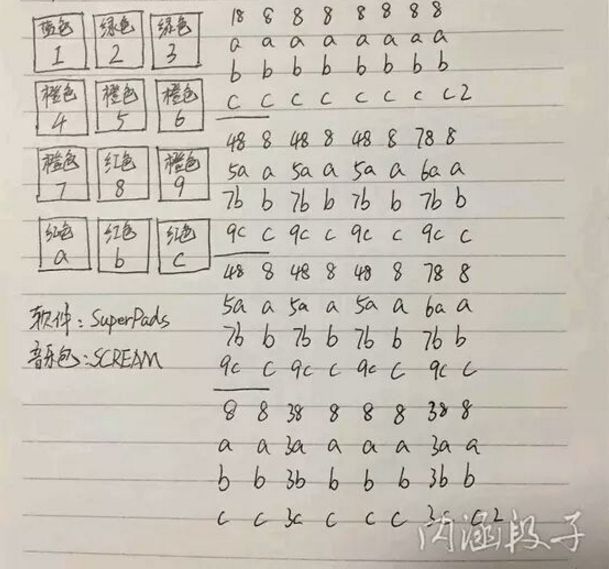 蓝色 绿色 绿色
1 2 3
橙色 橙色 橙色
4 5 6
橙色 红色 橙色
7 8 9
红色 红色 红色
a b c
软件：SuperPads
音乐包：SCREAM
18 8 8 8 8 8 8 8
a a a a a a a a
b b b b b b b b
c c c c c c c c2
48 8 48 8 48 8 78 8
5a a 5a a 5a a 6a a
7b b 7b b 7b b 7b b
9c c 9c c 9c c 9c c
48 8 48 8 48 8 78 8
5a a 5a a 5a a 6a a
7b b 7b b 7b b 7b b
9c c 9c c 9c c 9c c
8 8 38 8 8 8 38 8
a a 3a a a a 3a a
b b 3b b b b 3b b
c c 3c c c c 3c c2
内涵段子